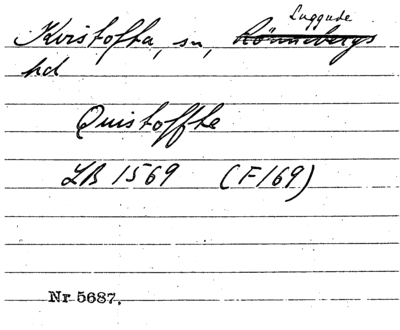 Luggude
Kvistofta, sn, Rönnebergs
hd
Quistoffte
LB 1569 (F169)
Nr 5687.